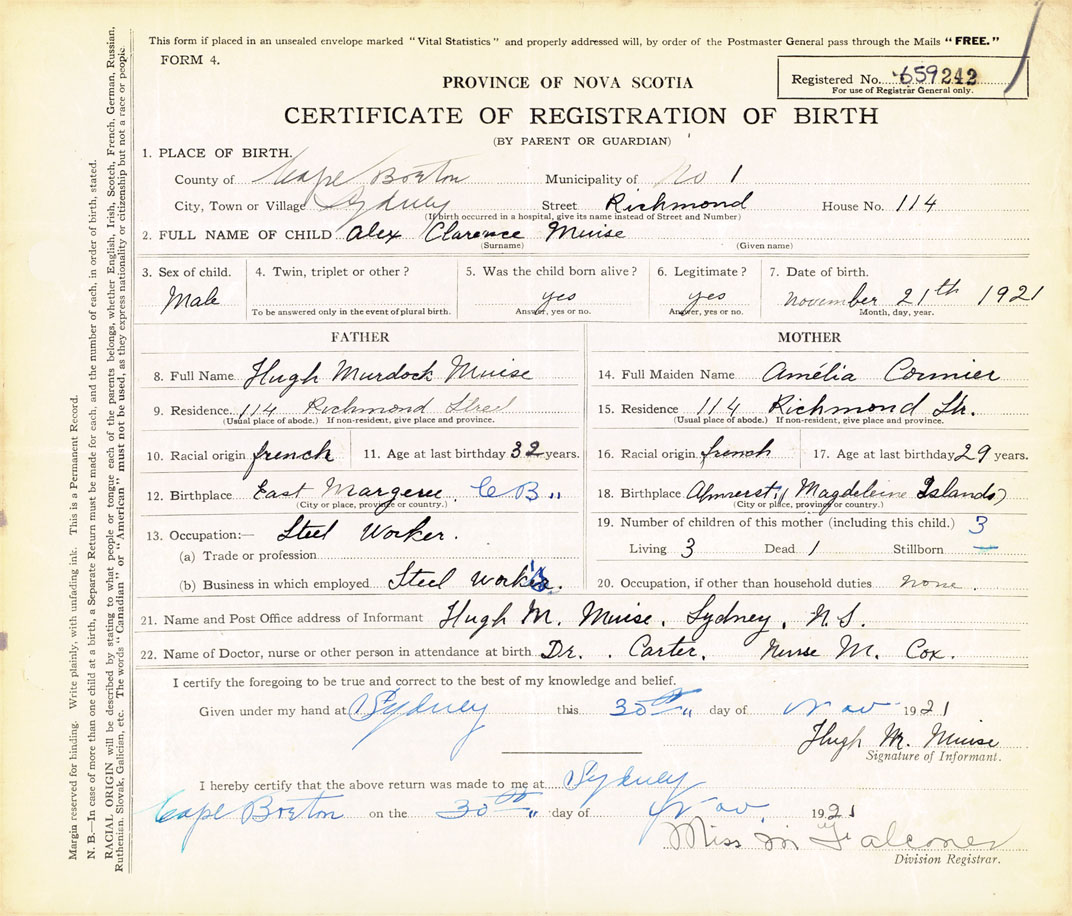 This form if placed in an unsealed envelope marked "Vital Statistics" and properly addressed will, by order of the Postmaster General pass through the Mails "FREE."
FORM 4.
Registered No. 659242
For use of Registrar General only.
PROVINCE OF NOVA SCOTIA
CERTIFICATE OF REGISTRATION OF BIRTH
(BY PARENT OR GUARDIAN)
1. PLACE OF BIRTH.
County of Cape Breton Municipality of No 1
City, Town or Village Sydney Street Richmond House No. 114
(If birth occurred in a hospital, give its name instead of Street and Number)
2. FULL NAME OF CHILD Alex Clarence Muise
(Surname) (Given name)
3. Sex of child. 4. Twin, triplet or other? 5. Was the child born alive? 6. Legitimate? 7. Date of birth.
Male yes yes November 21th 1921
To be answered only in the event of plural birth. Answer, yes or no. Answer, yes or no. Month, day, year.
FATHER
8. Full Name Hugh Murdock Muise
9. Residence 114 Richmond Street
(Usual place of abode.) If non-resident, give place and province.
10. Racial origin french 11. Age at last birthday 32 years.
12. Birthplace East Margeree, C B "
(City or place, province or country.)
13. Occupation:— Steel Worker.
(a) Trade or profession
(b) Business in which employed Steel
MOTHER
14. Full Maiden Name Amélia Cormier
15. Residence 114 Richmond Str.
(Usual place of abode.) If non-resident, give place and province.
16. Racial origin french 17. Age at last birthday 29 years.
18. Birthplace Ahmerst, (Magdeleine Islands)
(City or place, province or country.)
19. Number of children of this mother (including this child.) 3
Living 3 Dead 1 Stillborn —
20. Occupation, if other than household duties none.
21. Name and Post Office address of Informant Hugh M. Muise, Sydney, N S.
22. Name of Doctor, nurse or other person in attendance at birth Dr. . Carter, Nurse M. Cox.
I certify the foregoing to be true and correct to the best of my knowledge and belief.
Given under my hand at Sydney this 30th " day of Nov 1921
Hugh M. Muise
Signature of Informant.
I hereby certify that the above return was made to me at Sydney
Cape Breton on the 30th " day of Nov. 1921
Miss M Falconer
Division Registrar.
Margin reserved for binding. Write plainly, with unfading ink. This is a Permanent Record.
N. B.—In case of more than one child at a birth, a Separate Return must be made for each, and the number of each, in order of birth, stated.
RACIAL ORIGIN will be described by stating to what people or tongue each of the parents belongs, whether English, Irish, Scotch, French, German, Russian,
Ruthenian, Slovak, Galician, etc. The words "Canadian" or "American" must not be used, as they express nationality or citizenship but not a race or people.